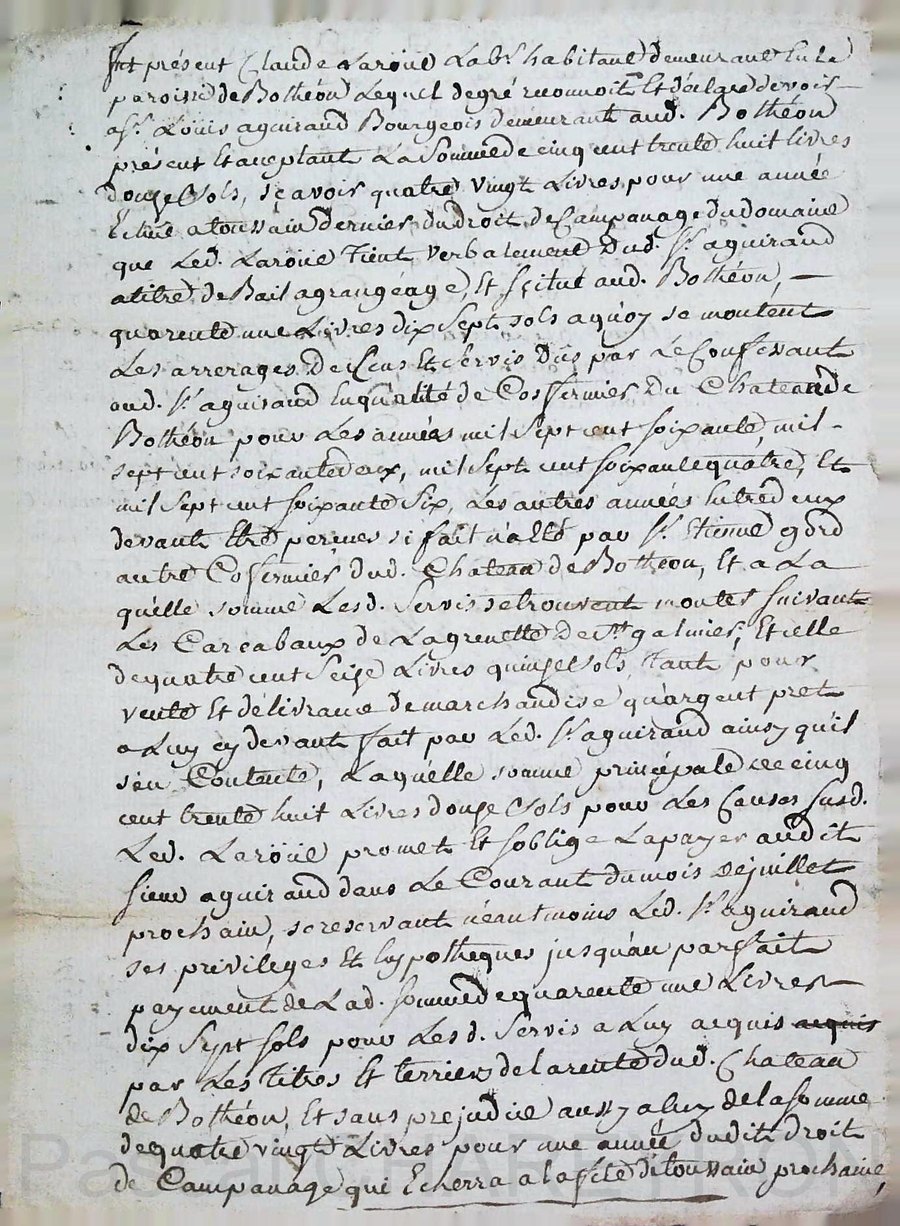 Fut présent Claude Laroüe Lab.r habitant demeurant En La
paroisse de Bothéon Lequel de gré reconnoit Et déclare devoir
a S.r Louis aguiraud Bourgeois demeurant aud. Bothéon
présent Et acceptant La Somme de cinq cent trente huit livres
douze Sols, sçavoir quatre vingt Livres pour une année
Echüe a toussain dernier du droit de Campanage du domaine
que Led. Laroüe Tient verbalement Dud. S.r aguiraud
a titre de Bail a grangéage, Et scitué aud. Bothéon, —
quarente une Livres dix Sept sols a quoy se montent
Les arrerages de Cens Et Servis Dûs par Le Confessant
aud. S.r aguiraud En qualité de Cofermier Du Chateau de
Bothéon pour Les années mil Sept cent soixante, mil
sept cent soixante deux, mil Sept cent soixante quatre, Et
mil Sept cent soixante Six, Les autres années Entre deux
devant Etre perçues si fait n'a Eté par S.r Etienne gord
autre Cofermier dud. Chateau de Bothéon, Et a La
quelle somme Lesd. Servis se trouvent monter suivant
Les Carcabaux de La grenette de S.t galmier, Et celle
de quatre cent Seize Livres quinze Sols, Tant pour
vente Et délivrance de marchandise qu'argent pret
a Luy cy devant fait par Led. S.r aguiraud ainsy qu'il
s'en Contente, Laquelle somme principale de cinq
cent trente huit Livres douze Sols pour Les Causes susd.
Led. Laroüe promet Et soblige La payer audit
sieur aguiraud dans Le Courant du mois de juillet
prochain, se reservant néantmoins Led. S.r aguiraud
ses privileges Et hypotheques jusqu'au parfait
payement de Lad. somme de quarente une Livres
dix Sept sols pour Lesd. Servis a Luy acquis acquis
par Les Titres Et terriers de la rente dud. Chateau
de Bothéon, Et sans prejudice aussy a luy de la somme
de quatre vingt Livres pour une année dudit droit
de Campanage qui Echerra a la fete de toussain prochaine,
Pascal CHARETTRON